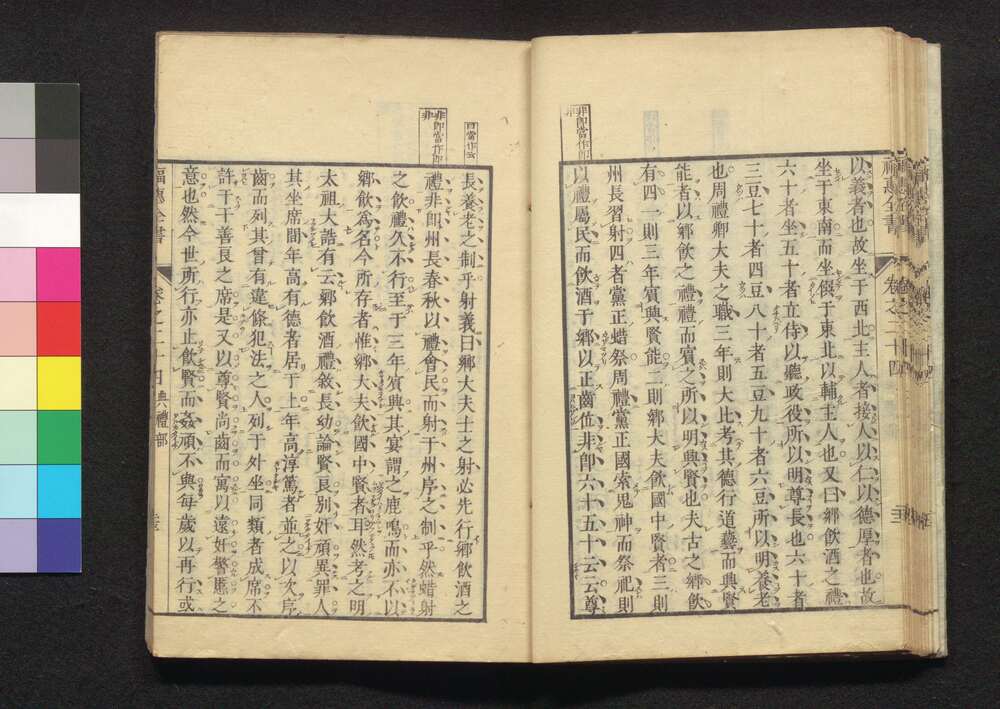 非即當作即
非
以義者也故坐于西北主人者接人以仁以德厚者也故
坐于東南而坐僎于東北以輔主人也又曰鄉飲酒之禮
六十者坐五十者立侍以聽政役所以明尊長也六十者
三豆七十者四豆八十者五豆九十者六豆所以明養老
也周禮鄉大夫之職三年則大比考其德行道藝而興賢
能者以鄉飲之禮禮而賓之所以明興賢也夫古之鄉飲
有四一則三年賓興賢能二則鄉大夫飲國中賢者三則
州長習射四者黨正蜡祭周禮黨正國索鬼神而祭祀則
以禮屬民而飲酒于鄉以正齒位非即六十五十云云尊
福惠全書 卷之二十四
曰當作云
非即當作即
非
長養老之制乎射義曰鄉大夫士之射必先行鄉飲酒之
禮非即州長春秋以禮會民而射于州序之制乎然蜡射
之飲禮久不行至于三年賓興其宴謂之鹿鳴而亦不以
鄉飲爲名今所存者惟鄉大夫飲國中賢者耳然考之明
太祖大誥有云鄉飲酒禮敘長幼論賢良別奸頑異罪人
其坐席間年高有德者居于上年高淳篤者並之以次序
齒而列其曾有違條犯法之人列于外坐同類者成席不
許干于善良之席是又以尊賢尚齒而寓以遠奸警慝之
意也然今世所行亦止飲賢而姦頑不與每歲以再行或
福惠全書 卷之二十四 典禮部